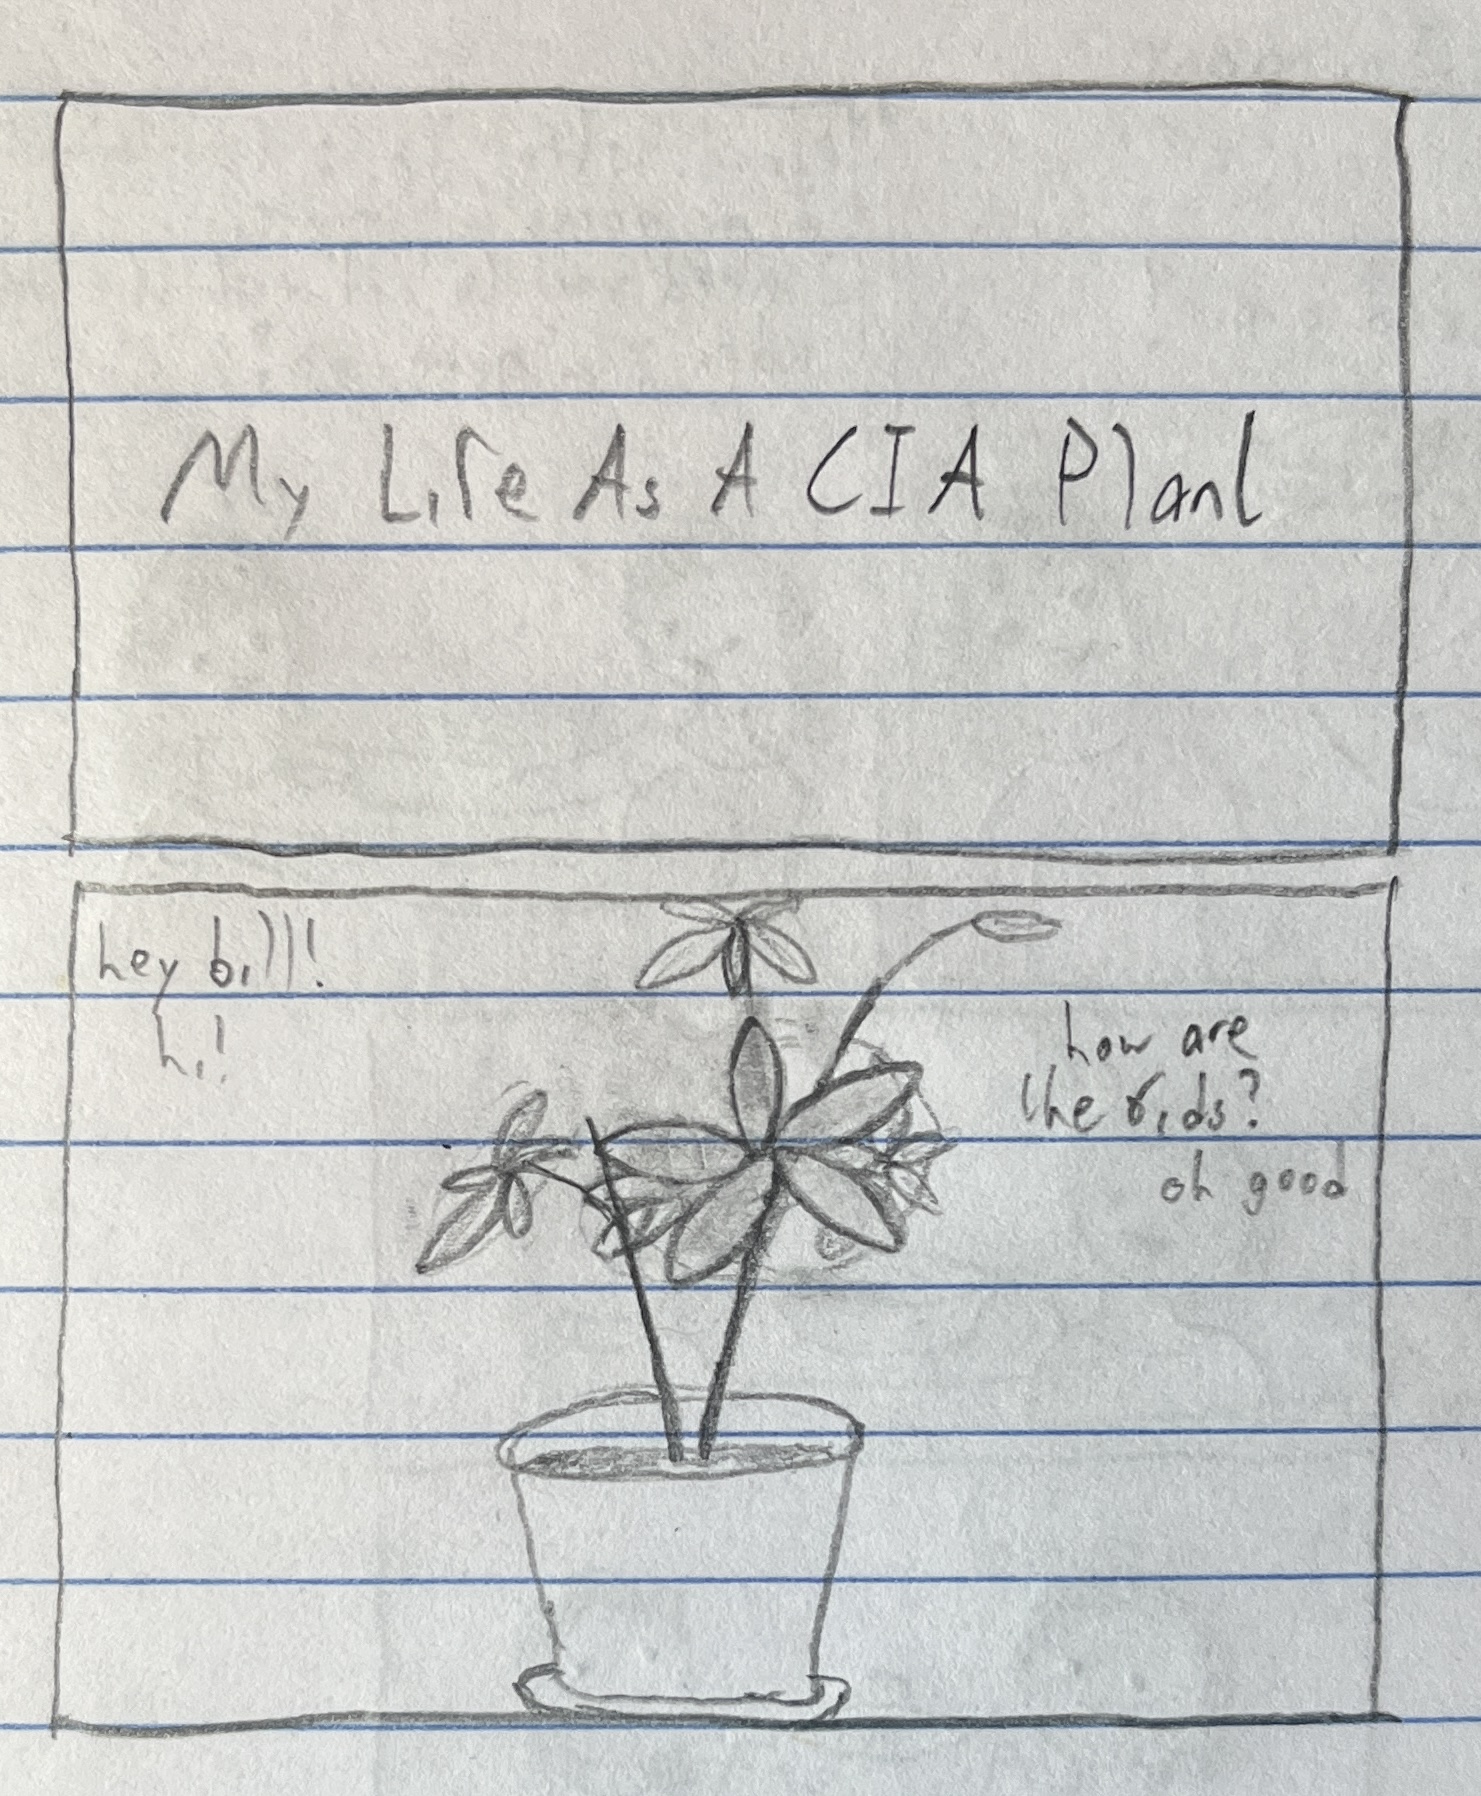 My Life As A CIA Plant
hey bill!
hi!
how are
the kids?
oh good